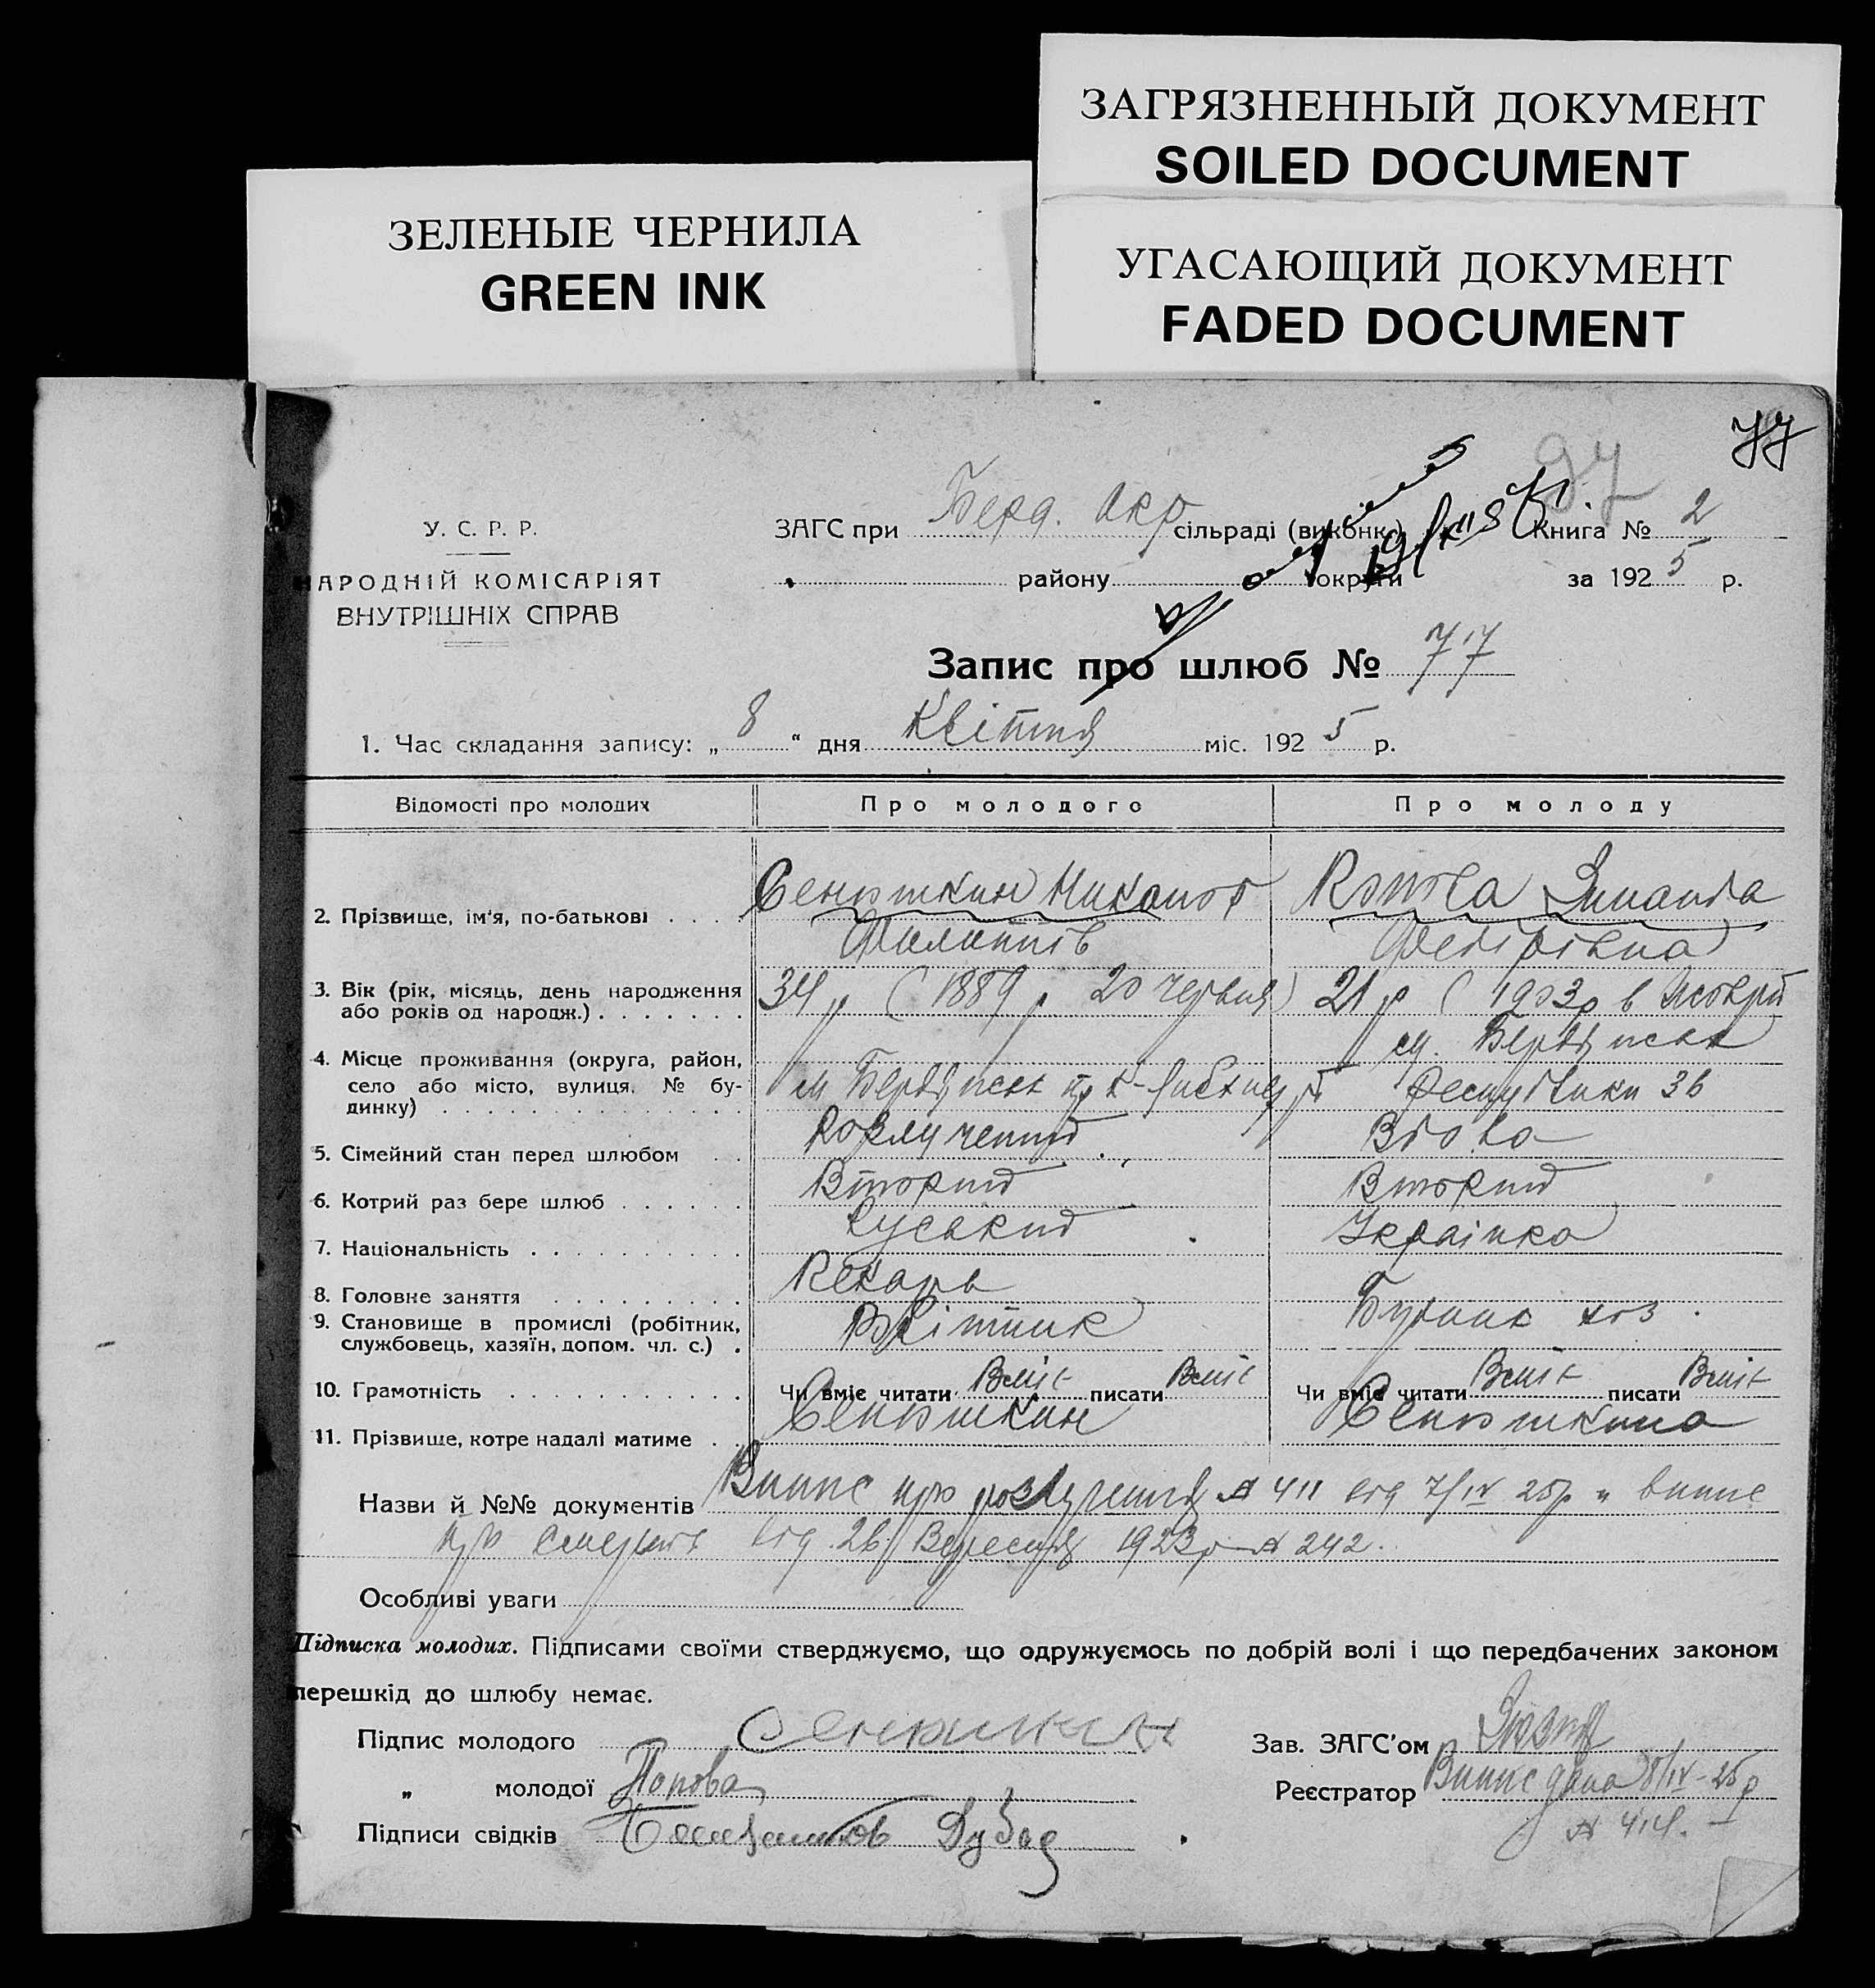 ЗАГРЯЗНЕННЫЙ ДОКУМЕНТ
SOILED DOCUMENT
ЗЕЛЕНЫЕ ЧЕРНИЛА
GREEN INK
УГАСАЮЩИЙ ДОКУМЕНТ
FADED DOCUMENT
77
97
У. С. Р. Р.
НАРОДНІЙ КОМІСАРІЯТ
ВНУТРІШНІХ СПРАВ
ЗАГС при Берд. Окр сільраді (виконк.) Книга № 2
району округи за 192 5 р.
Запис про шлюб № 77
1. Час складання запису: „ 8 “ дня Квітня міс. 192 5 р.
Відомості про молодих Про молодого Про молоду
2. Прізвище, ім'я, по-батькові Сенюшкин Никаноr Попова Зинаида
Филиппів Федорівна
3. Вік (рік, місяць, день народження або років од народж.) 34 р (1889 р 20 червня) 21 р (1903 р в
м. Бердянськ
4. Місце проживання (округа, район, село або місто, вулиця, № будинку) м Бердянськ пр К-Лібкнехт Республики 36
5. Сімейний стан перед шлюбом Розлучений Вдова
6. Котрий раз бере шлюб Вторий Вторий
7. Національність Руський Українка
8. Головне заняття Пекарь
9. Становище в промислі (робітник, службовець, хазяїн, допом. чл. с.) Робітник хоз.
10. Грамотність Чи вміє читати Вміє писати Вміє Чи вміє читати Вміє писати Вміє
11. Прізвище, котре надалі матиме Сенюшкин Сенюшкина
Назви й №№ документів Випис про розлучення № 411 від 7/IV 25 р и випис
про смерть від 26 Вересня 1923 р № 242.
Особливі уваги
Підписка молодих. Підписами своїми стверджуємо, що одружуємось по добрій волі і що передбачених законом
перешкід до шлюбу немає.
Підпис молодого Сенюшкин Зав. ЗАГС'ом
„ молодої Попова Реєстратор Випис дана 8/IV-25 р
№ 414.
Підписи свідків